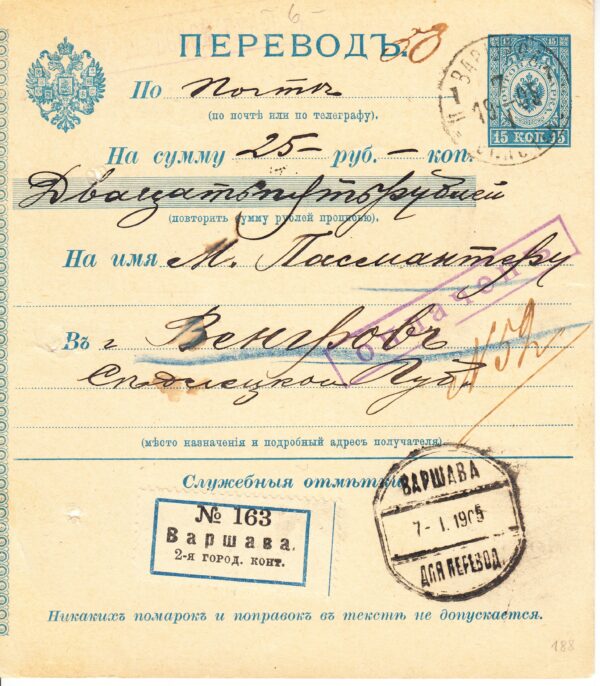 - 6 -
ПЕРЕВОДЪ.
15 КОП 15
По Почте
(по почтѣ или по телеграфу).
На сумму 25 - руб. - коп.
Двацать пять рублей
(повторить сумму рублей прописью).
На имя М. Пассмантеру
оплачено
Въ г Венгровъ
Съдлецкой Губ.
№ 52
(мѣсто назначенія и подробный адресъ получателя).
Служебныя отмѣтки.
№ 163
Варшава.
2-я город. конт.
ВАРШАВА
7-1.1905
ДЛЯ ПЕРЕВОД.
Никакихъ помарокъ и поправокъ въ текстѣ не допускается.
188